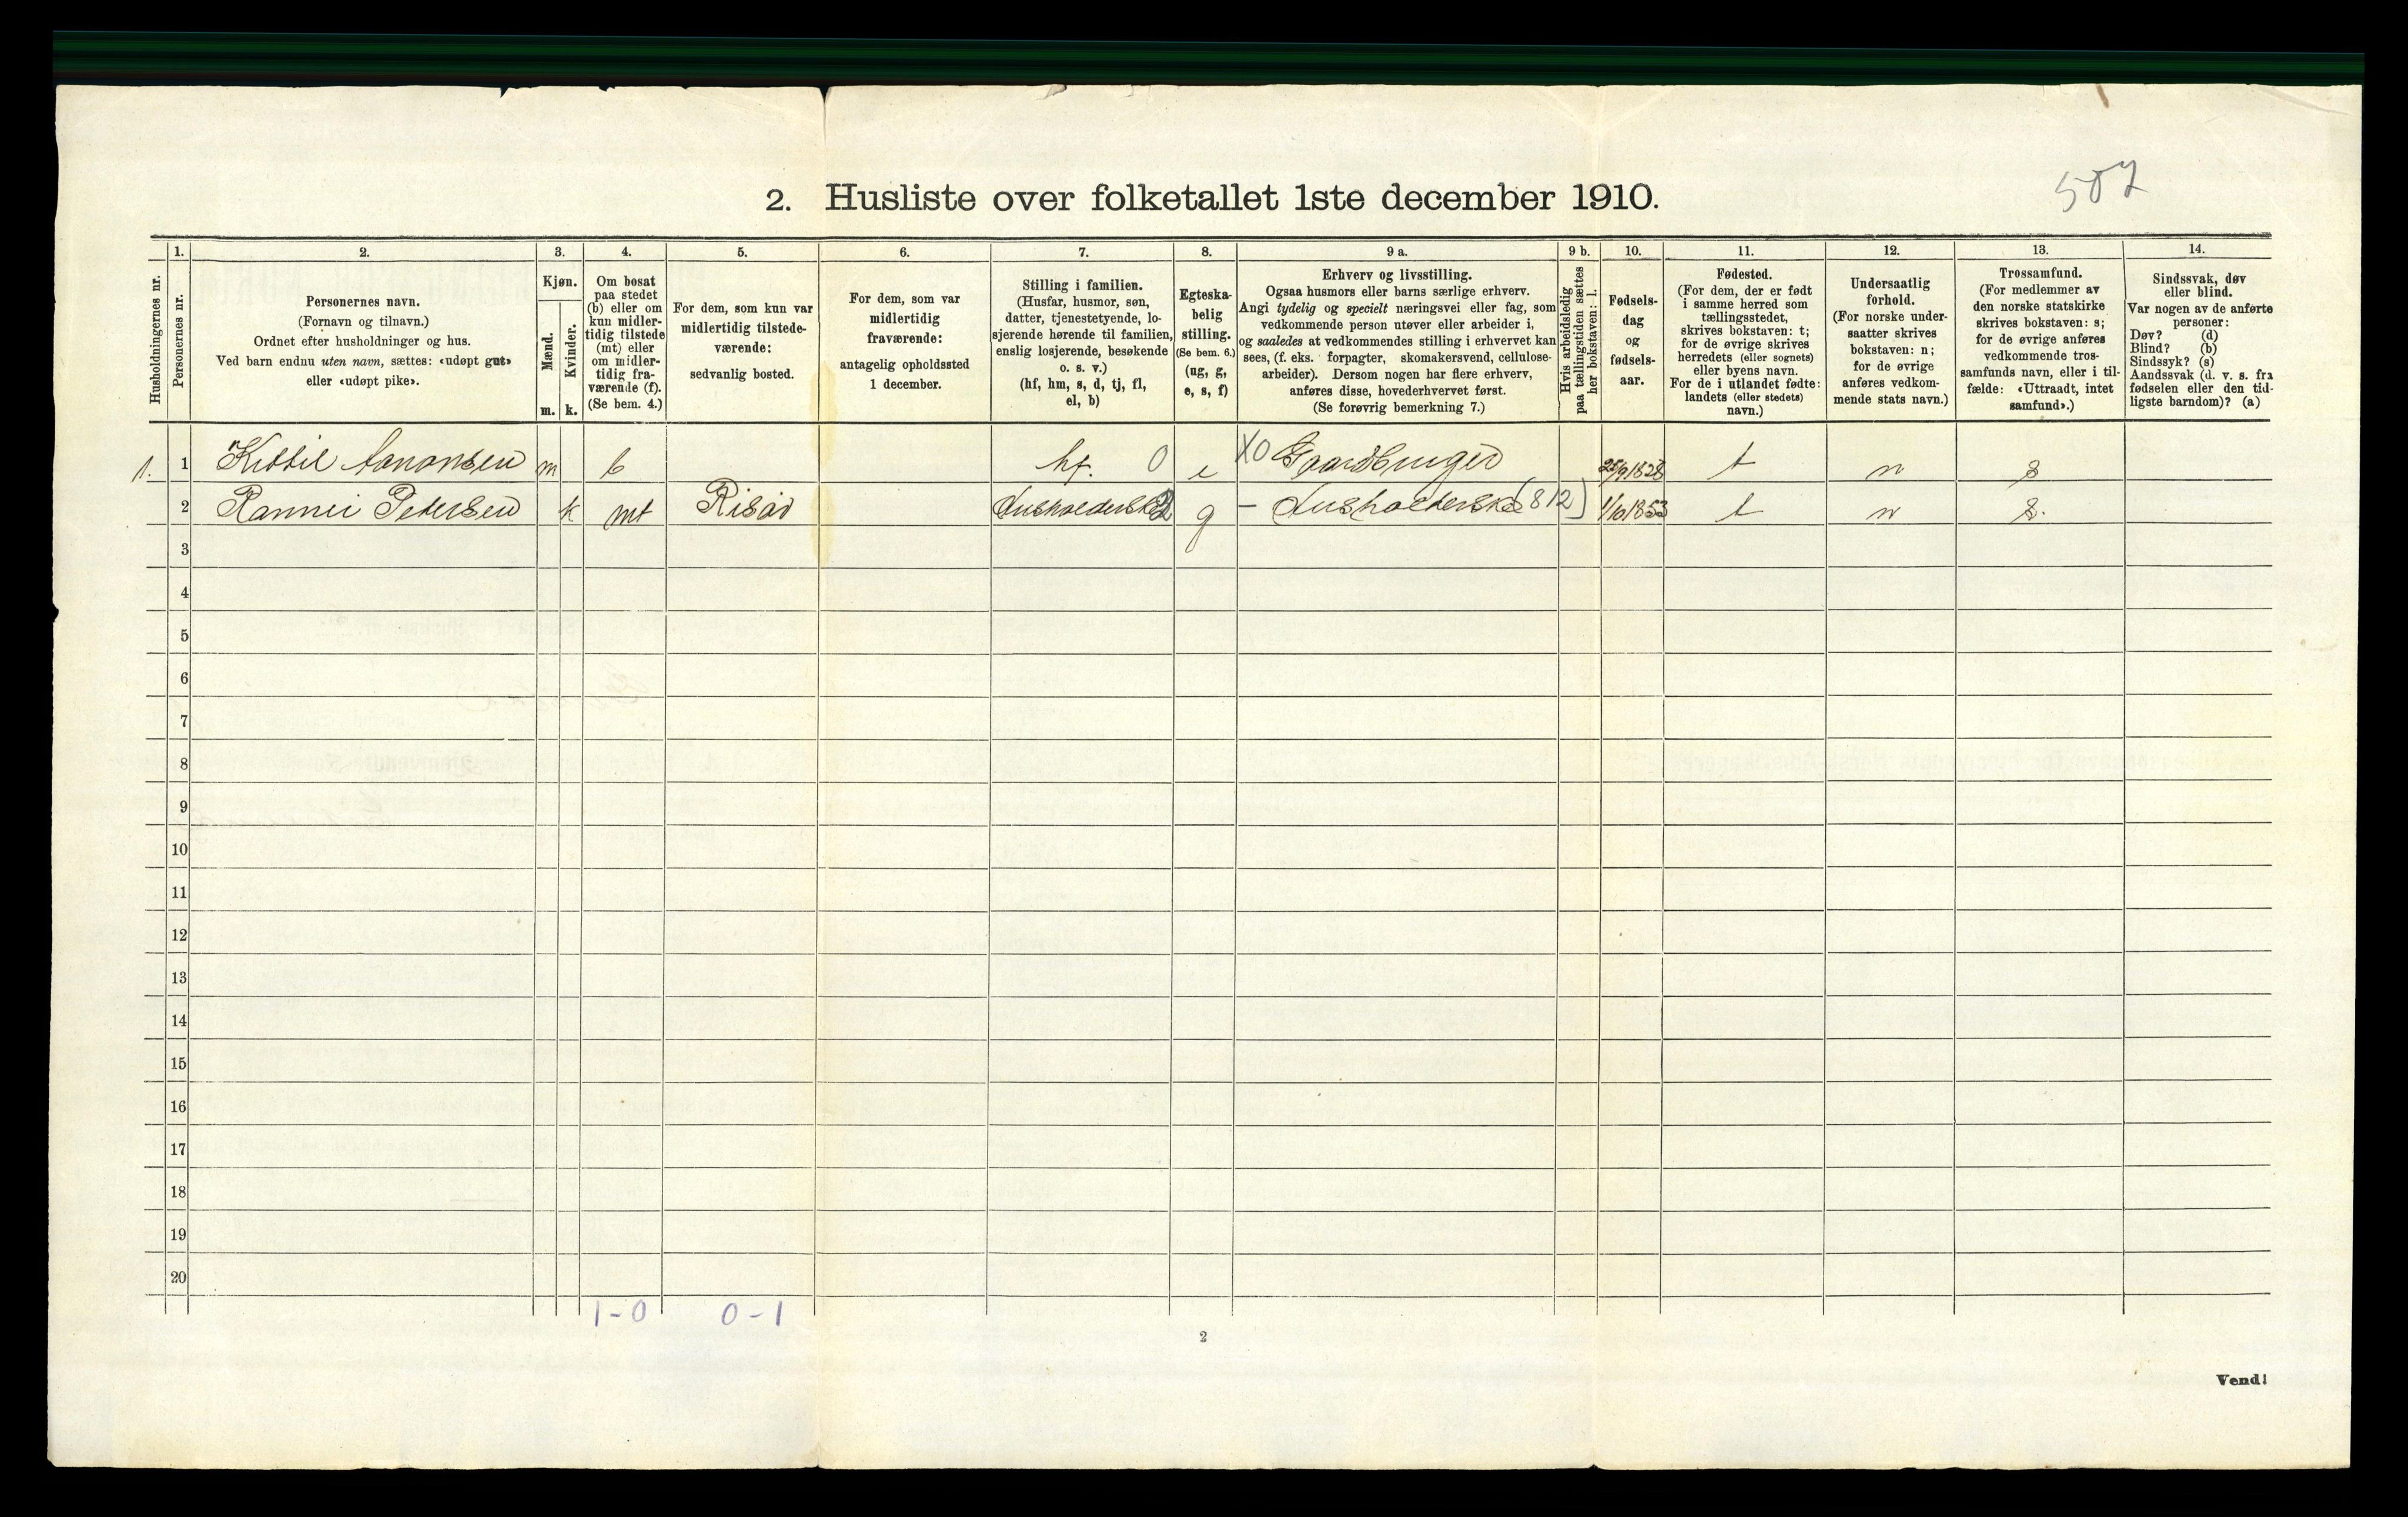 507
2. Husliste over folketallet 1ste december 1910.
Husholdningernes nr.
1.
Personernes nr.
2.
Personernes navn.
(Fornavn og tilnavn.)
Ordnet efter husholdninger og hus.
Ved barn endnu uten navn, sættes: «udøpt gut»
eller «udøpt pike».
3.
Kjøn.
Mænd.
Kvinder.
m. k.
4.
Om bosat
paa stedet
(b) eller om
kun midler-
tidig tilstede
(mt) eller
om midler-
tidig fra-
værende (f).
(Se bem. 4.)
5.
For dem, som kun var
midlertidig tilstede-
værende:
sedvanlig bosted.
6.
For dem, som var
midlertidig
fraværende:
antagelig opholdssted
1 december.
7.
Stilling i familien.
(Husfar, husmor, søn,
datter, tjenestetyende, lo-
sjerende hørende til familien,
enslig losjerende, besøkende
o. s. v.)
(hf, hm, s, d, tj, fl,
el, b)
8.
Egteska-
belig
stilling.
(Se bem. 6.)
(ug, g,
e, s, f)
9 a.
Erhverv og livsstilling.
Ogsaa husmors eller barns særlige erhverv.
Angi tydelig og specielt næringsvei eller fag, som
vedkommende person utøver eller arbeider i,
og saaledes at vedkommendes stilling i erhvervet kan
sees, (f. eks. forpagter, skomakersvend, cellulose-
arbeider). Dersom nogen har flere erhverv,
anføres disse, hovederhvervet først.
(Se forøvrig bemerkning 7.)
9 b.
Hvis arbeidsledig
paa tællingstiden sættes
her bokstaven: l.
10.
Fødsels-
dag
og
fødsels-
aar.
11.
Fødested.
(For dem, der er født
i samme herred som
tællingsstedet,
skrives bokstaven: t;
for de øvrige skrives
herredets (eller sognets)
eller byens navn.
For de i utlandet fødte:
landets (eller stedets)
navn.)
12.
Undersaatlig
forhold.
(For norske under-
saatter skrives
bokstaven: n;
for de øvrige
anføres vedkom-
mende stats navn.)
13.
Trossamfund.
(For medlemmer av
den norske statskirke
skrives bokstaven: s;
for de øvrige anføres
vedkommende tros-
samfunds navn, eller i til-
fælde: «Uttraadt, intet
samfund».)
14.
Sindssvak, døv
eller blind.
Var nogen av de anførte
personer:
Døv? (d)
Blind? (b)
Sindssyk? (s)
Aandssvak (d. v. s. fra
fødselen eller den tid-
ligste barndom)? (a)
1. 1 Kittil Aanonsen m b hf. 0 e X0 Gaardbruger 1828 t n s
2 Rannei Petersen k mt Risør Husholderske g - Husholderske (812) 1/10 1853 t n s.
3
4
5
6
7
8
9
10
11
12
13
14
15
16
17
18
19
20
1-0 0-1
2
Vend!